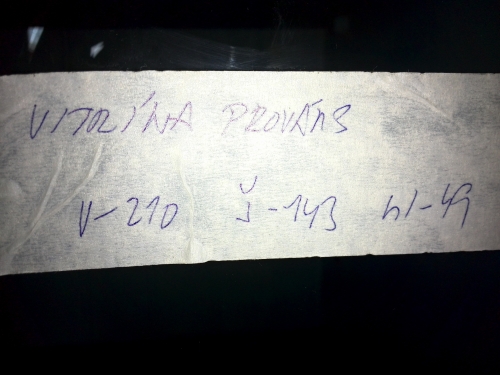 VITRÍNA PROVÁNS
V-210 Š-143 hl-49